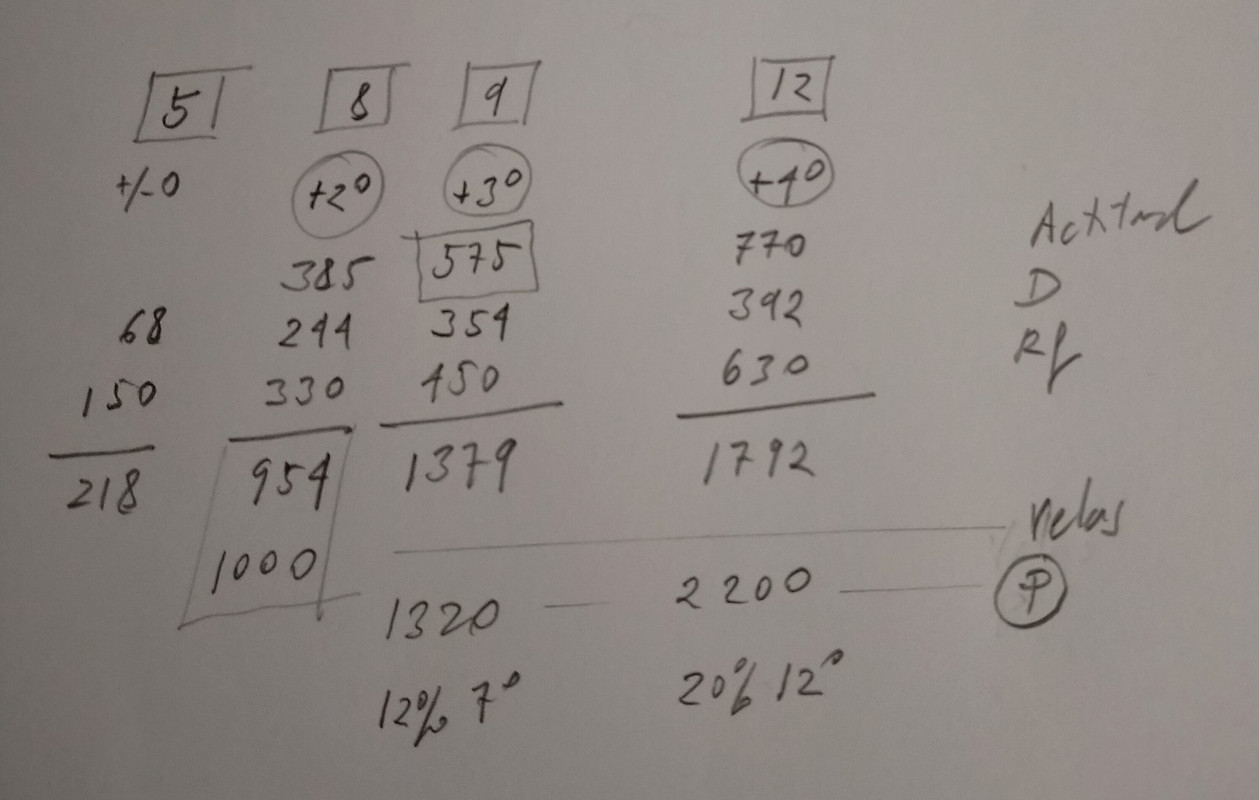 5 8 9 12
+/-0 +2° +3° +4°
385 575 770 Actitud
68 244 354 392 D
150 330 450 630 Rf
218 954 1379 1792
1000 Velas
1320 — 2200 — P
12% 7° 20% 12°